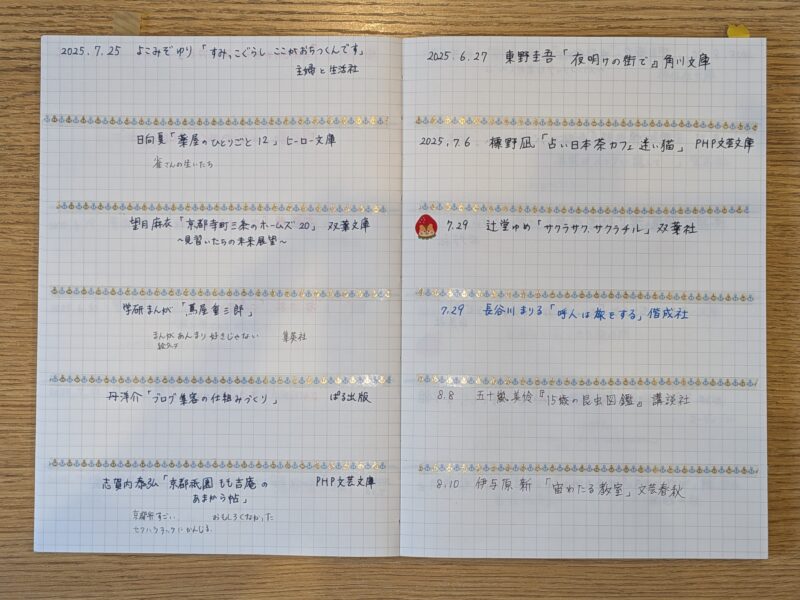 2025.7.25 よこみぞゆり「すみっこぐらし ここがおちつくんです」
主婦と生活社
日向夏「薬屋のひとりごと 12」 ヒーロー文庫
雀さんの生いたち
望月麻衣「京都寺町三条のホームズ 20」 双葉文庫
〜見習いたちの未来展望〜
学研まんが「蔦屋重三郎」
まんがあんまり好きじゃない 集英社
絵タッチ
丹洋介「ブログ集客の仕組みづくり」 ぱる出版
志賀内泰弘「京都祇園もも吉庵の PHP文芸文庫
あまから帖」
京都弁すごい、 おもしろくなかった
セクハラチックにかんじる
2025.6.27 東野圭吾「夜明けの街で』角川文庫
2025.7.6 標野凪「占い日本茶カフェ 迷い猫」 PHP文芸文庫
7.29 辻堂ゆめ「サクラサク、サクラチル」双葉社
7.29 長谷川まりる「呼人は旅をする」偕成社
8.8 五十嵐美怜『15歳の昆虫図鑑』講談社
8.10 伊与原新 「宙わたる教室」文芸春秋